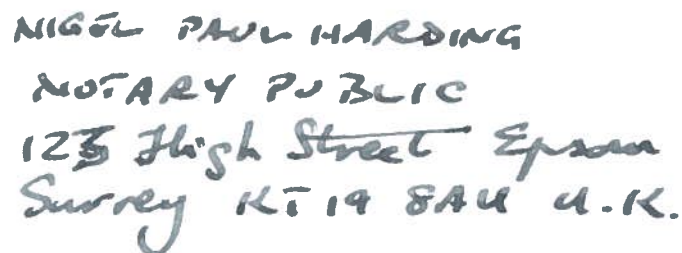 NIGEL PAUL HARDING
NOTARY PUBLIC
123 High Street Epsom
Surrey KT19 8AU U.K.